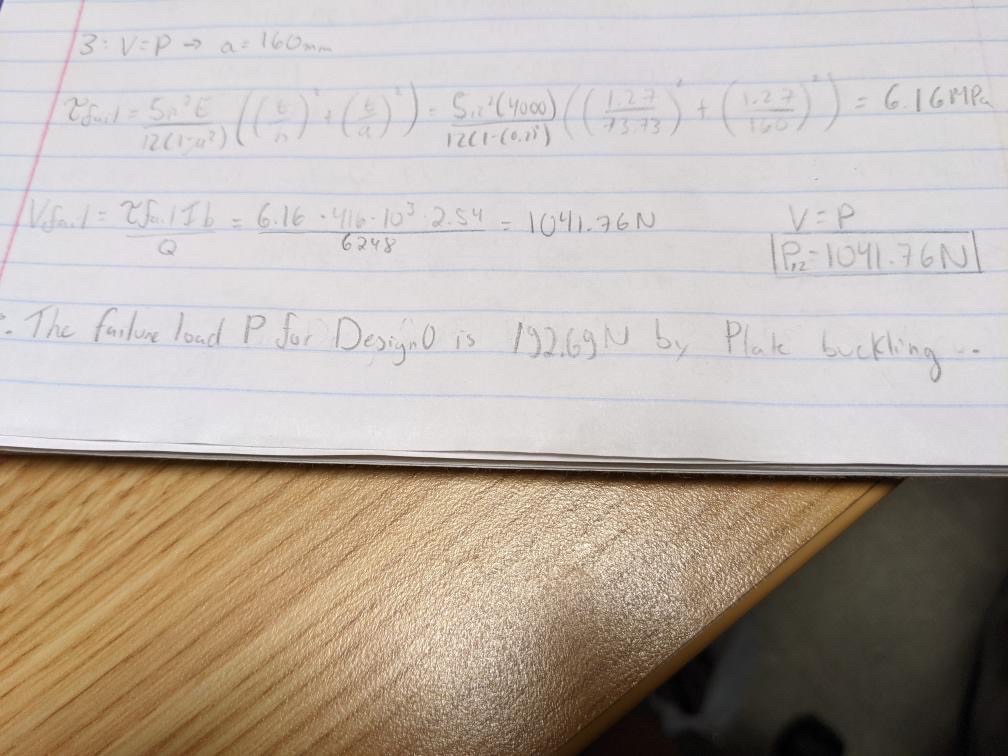 3: V=P → a=160mm
τfail = 5π²E / 12(1-μ²) ((t/h)² + (t/a)²) = 5π²(4000) / 12(1-(0.2)²) ((1.27/73.73)² + (1.27/160)²) = 6.16MPa
Vfail = τfail I b / Q = 6.16 · 416·10³ · 2.54 / 6248 = 1041.76N V=P
P₁₂=1041.76N
∴ The failure load P for Design0 is 192.69N by Plate buckling